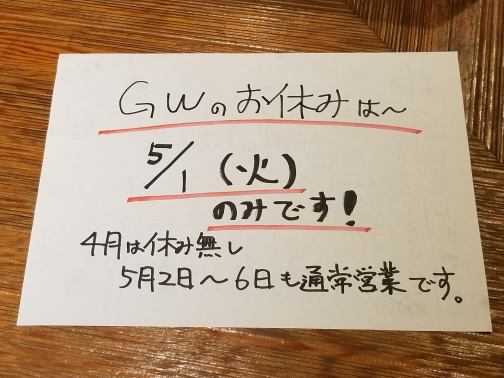 GWのお休みは〜
5/1(火)
のみです!
4月は休み無し
5月2日〜6日も通常営業です。